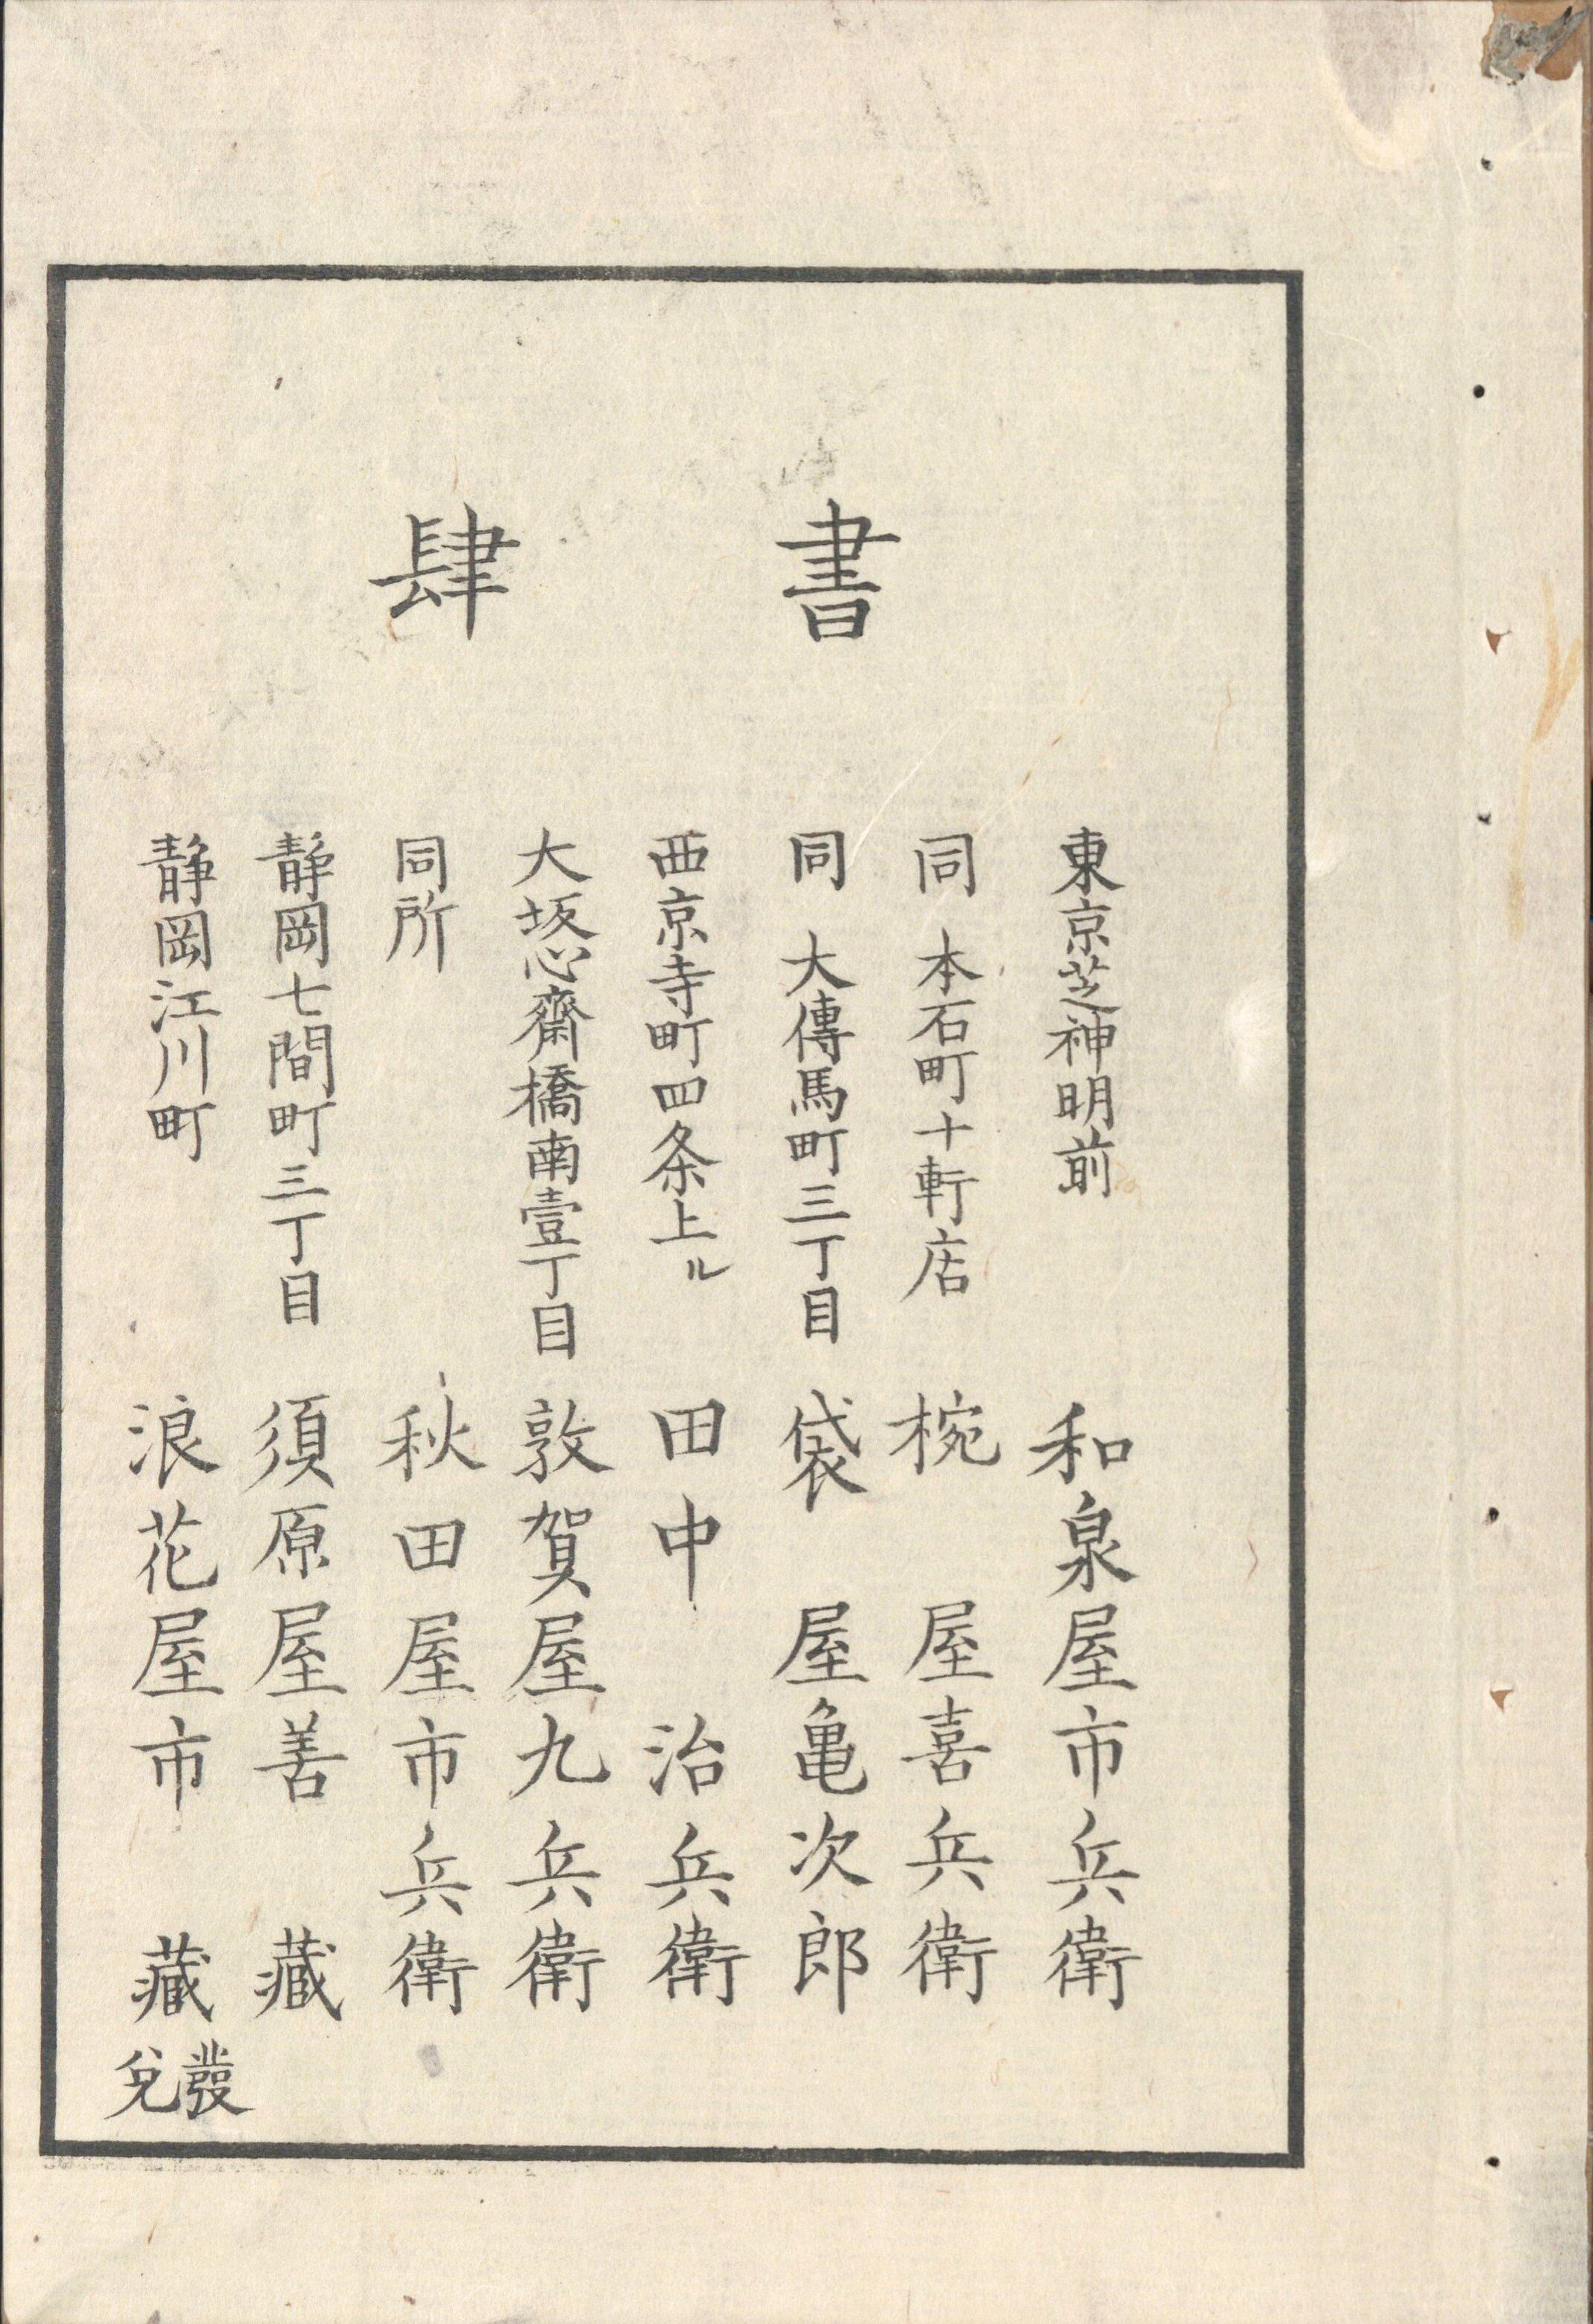 書肆
東京芝神明前 和泉屋市兵衛
同 本石町十軒店 椀屋喜兵衛
同 大傳馬町三丁目 袋屋亀次郎
西京寺町四条上ル 田中治兵衛
大坂心齋橋南壹丁目 敦賀屋九兵衛
同所 秋田屋市兵衛
静岡七間町三丁目 須原屋善藏
静岡江川町 浪花屋市藏
發兌